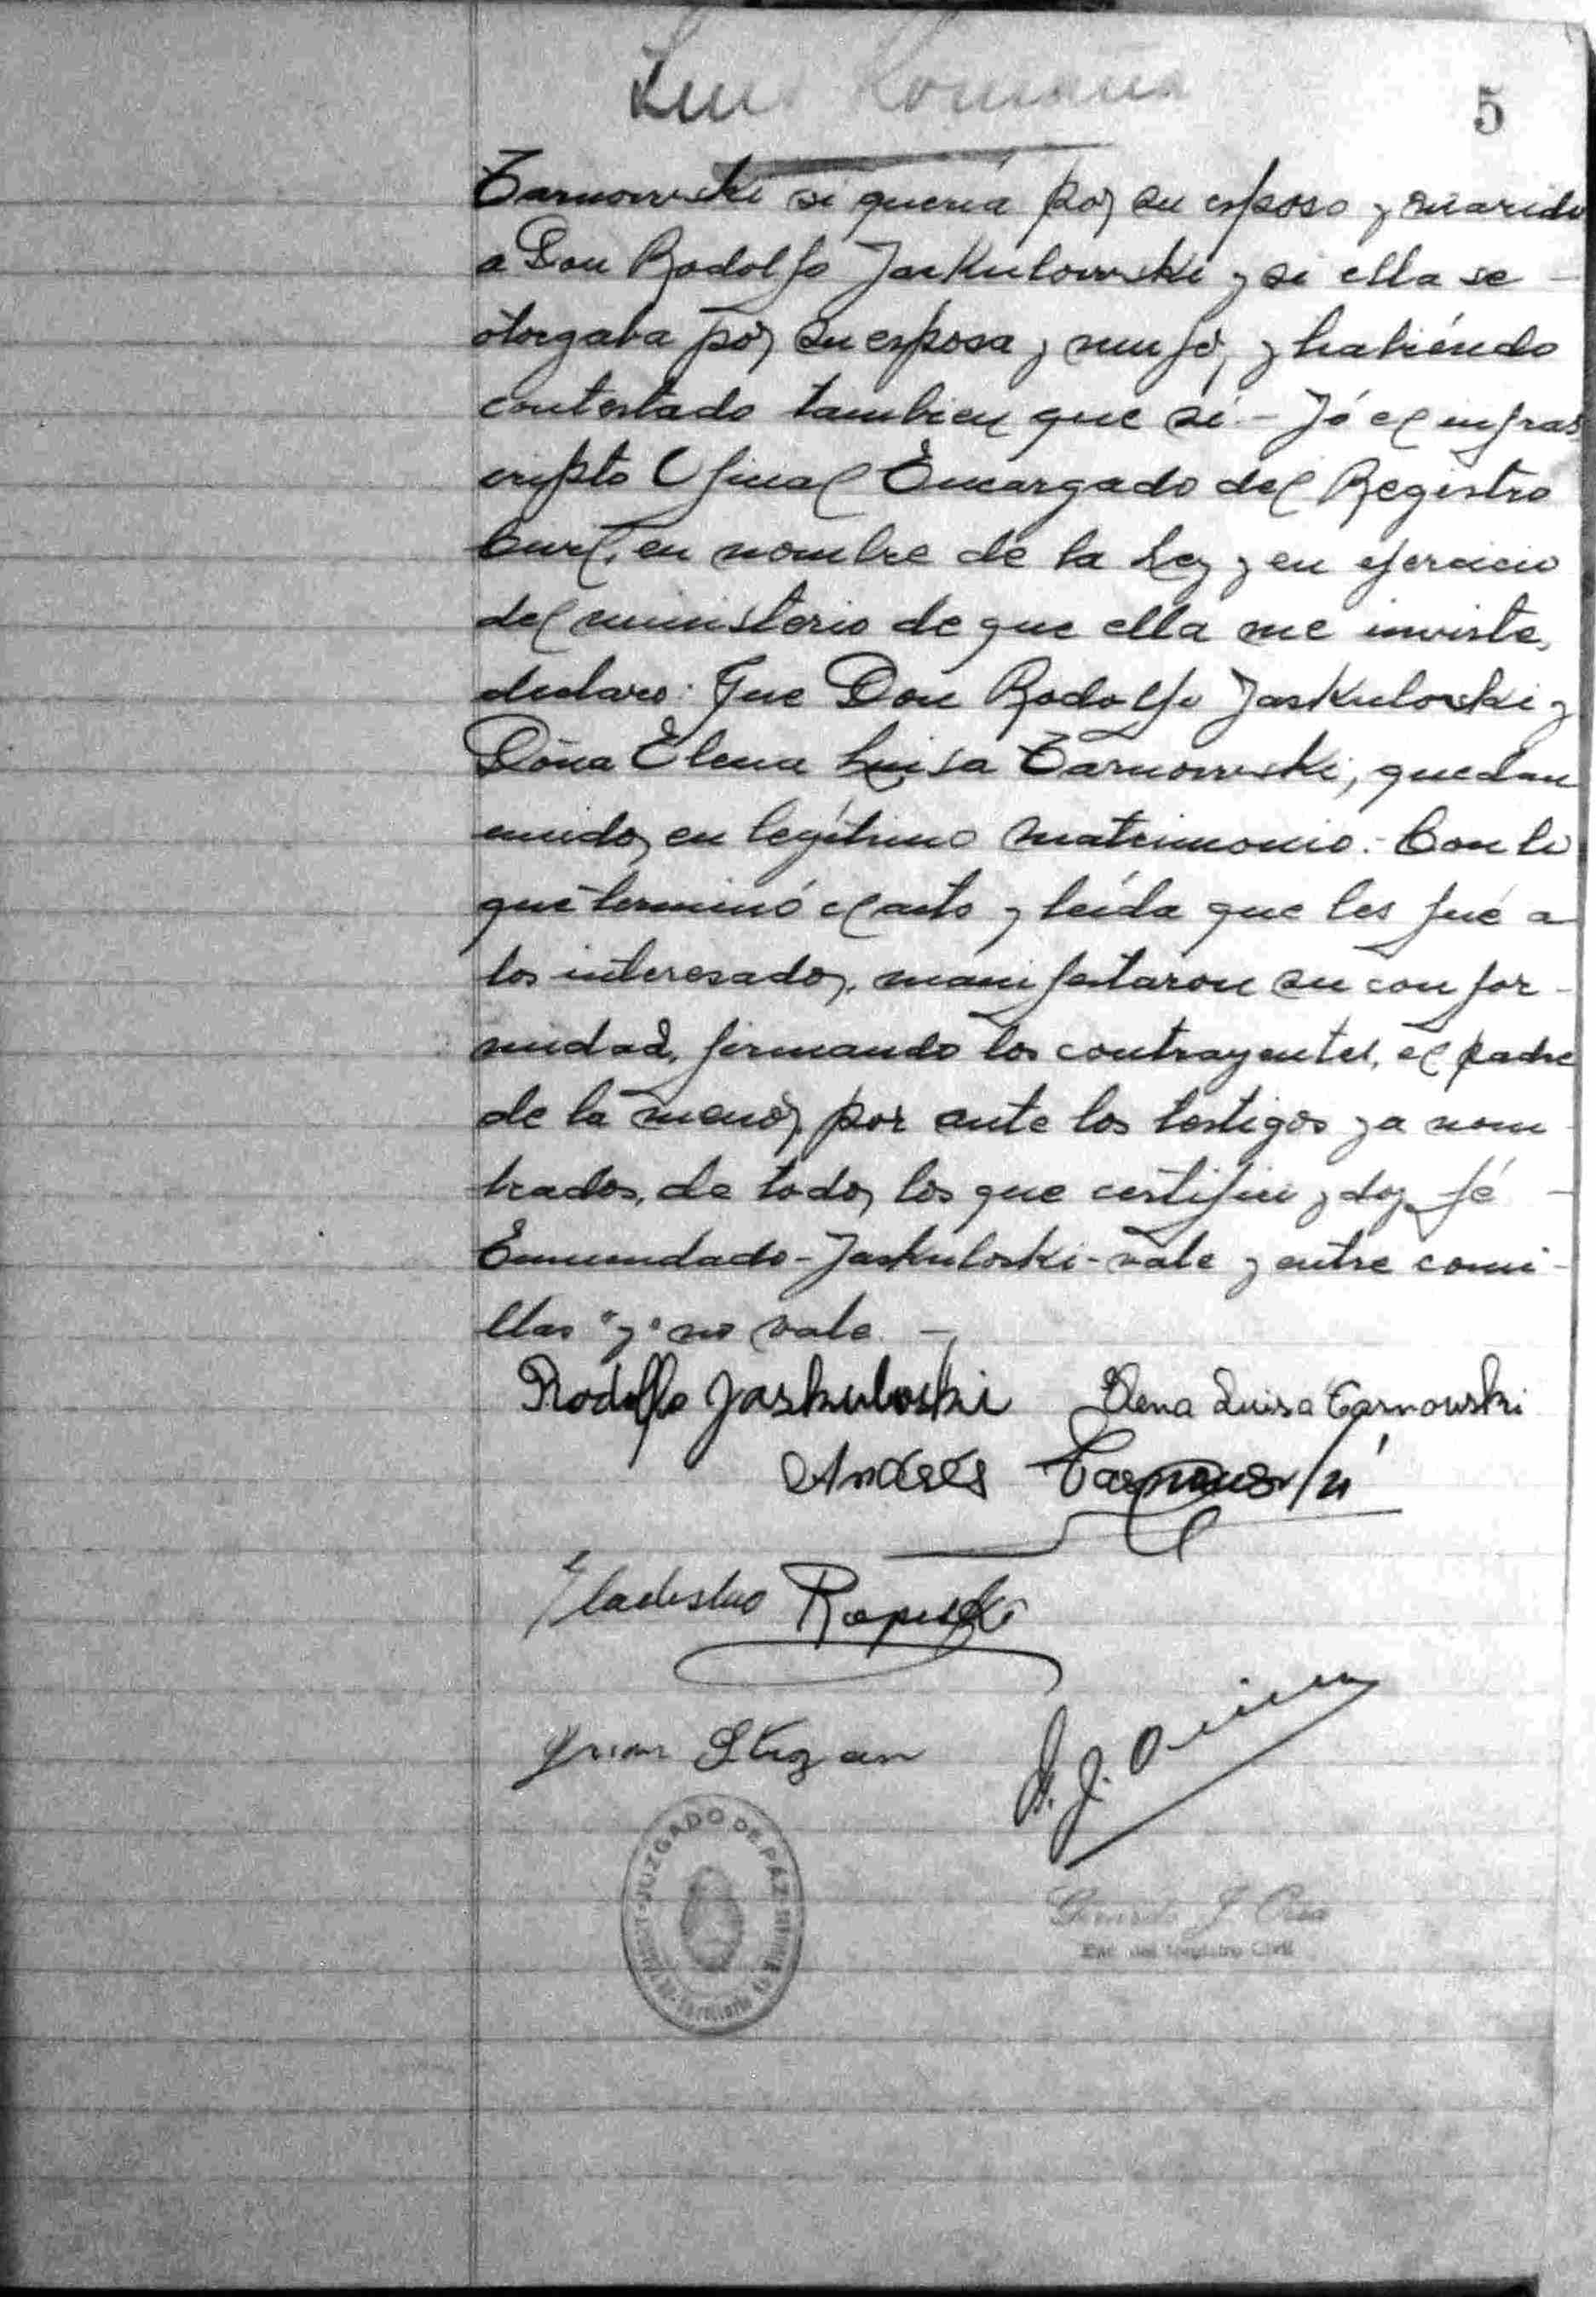 Luis Romana
5
Tarnowski si quería por su esposo y marido
a Don Rodolfo Jaskulowski y si ella se -
otorgaba por su esposa y mujer, y habiéndo
contestado tambien que sí.- Yó el infras
cripto Oficial Encargado del Registro
Civil, en nombre de la Ley y en ejercicio
del ministerio de que ella me inviste,
declaro: Que Don Rodolfo Jaskuloski y
Doña Elena Luisa Tarnowski, quedan
unidos en legítimo matrimonio.- Con lo
que terminó el acto y leída que les fué a
los interesados, manifestaron su confor-
midad, firmando los contrayentes, el padre
de la menor, por ante los testigos ya nom
brados, de todos los que certifico y doy fé -
Enmendado-Jaskuloski-vale y entre comi-
llas "y" no vale. -
Rodolfo Jaskuloski Elena Luisa Tarnowski
Andrés Tarnowski
Ladislao
JUZGADO DE PAZ
J.
Enc. del Registro Civil